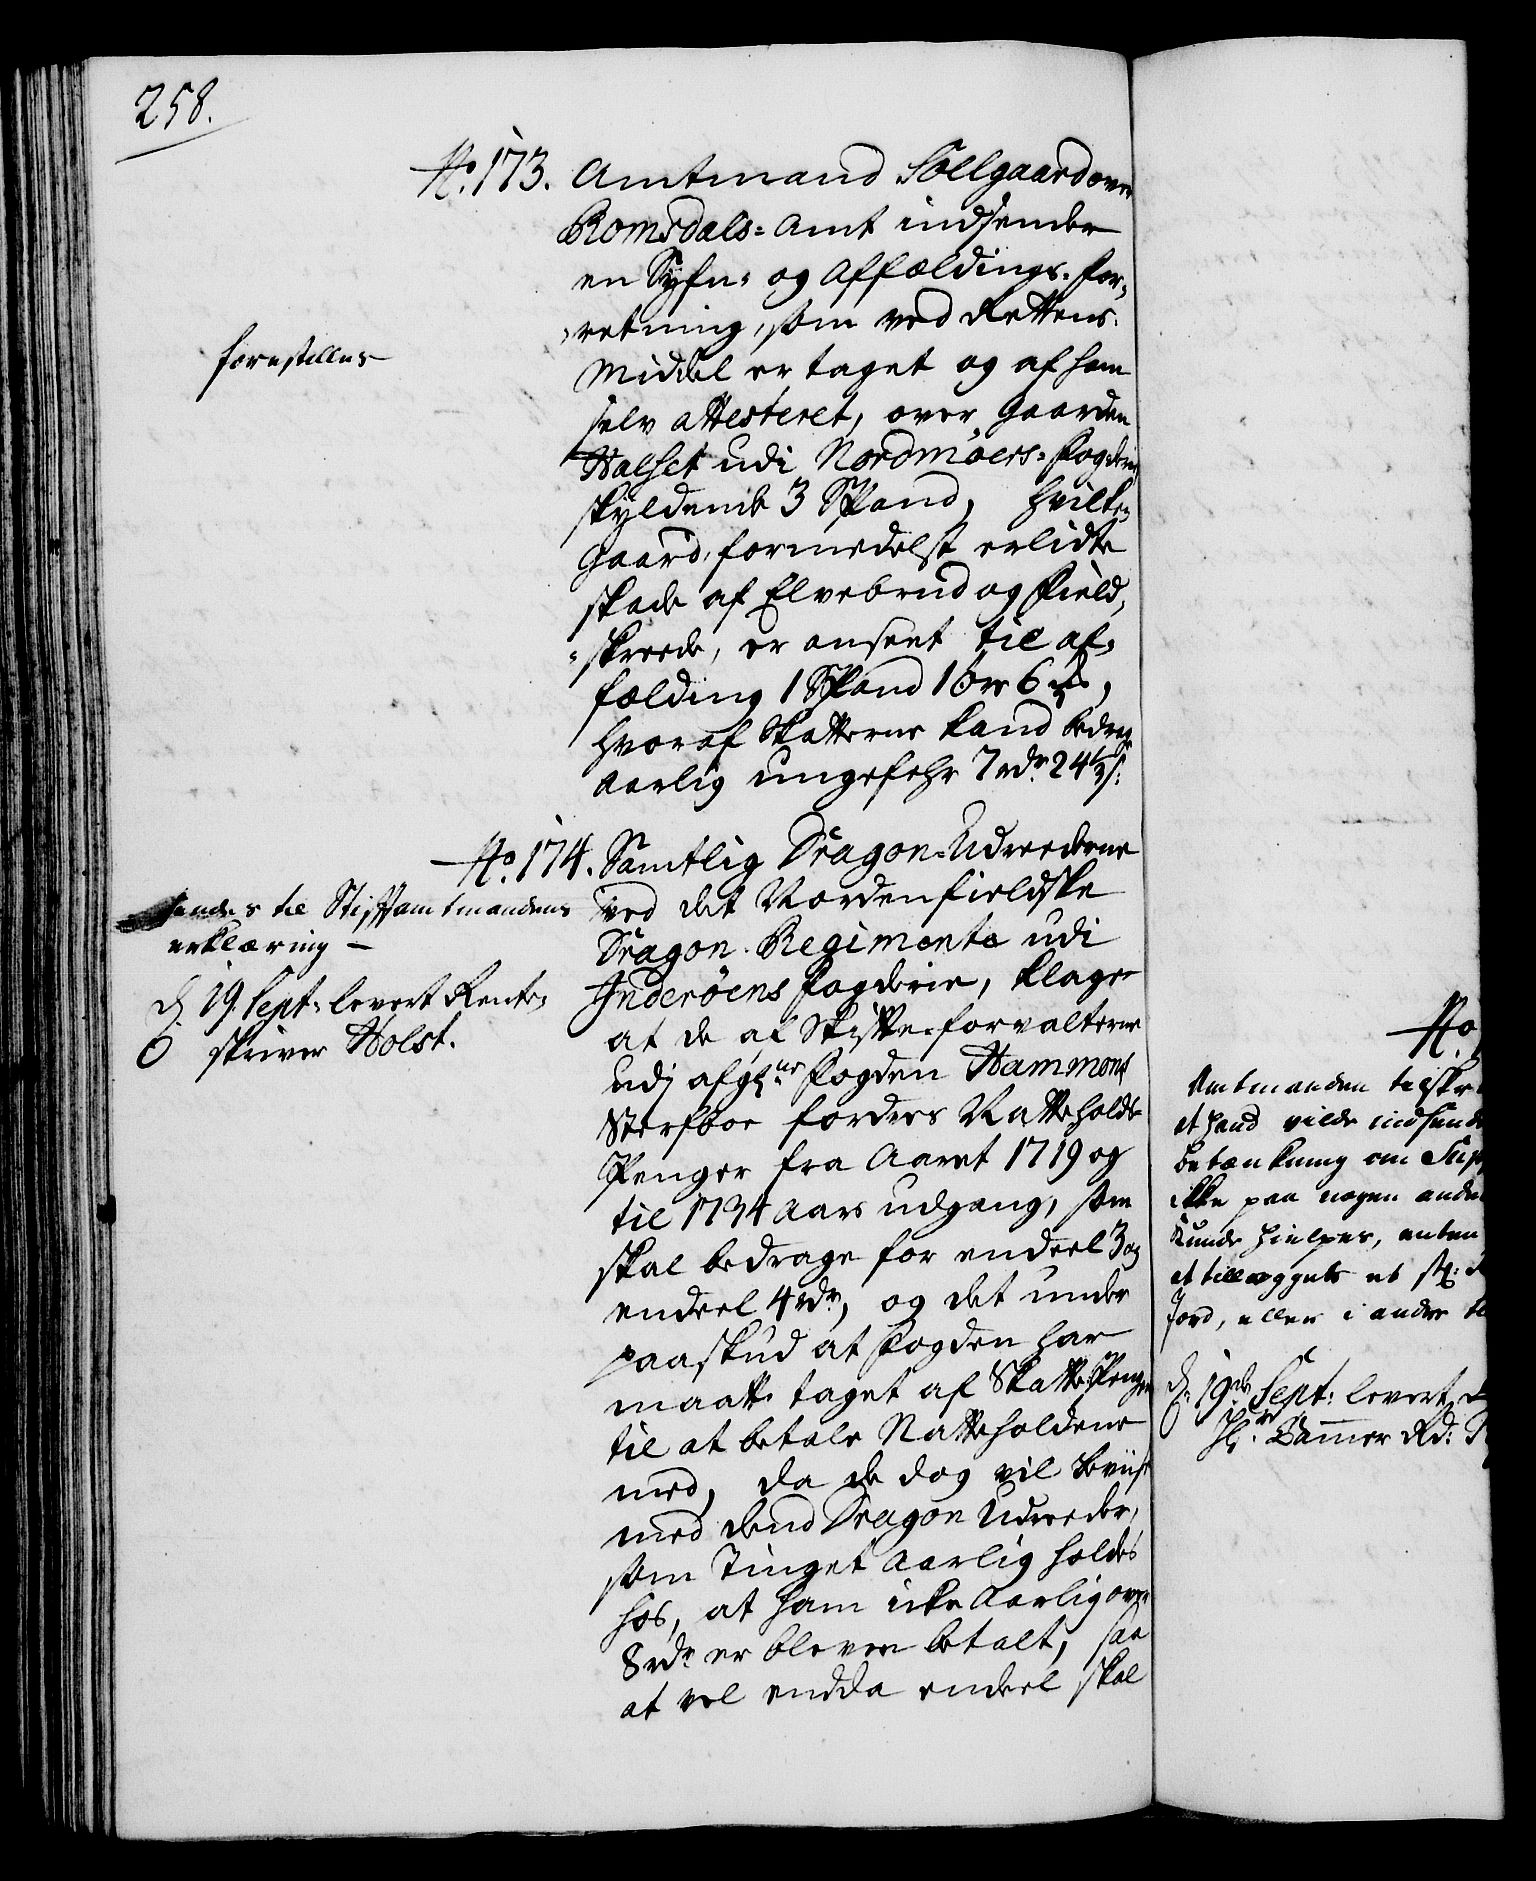 258.
No. 173. Amtmand Sollgaard over
Romsdals-Amt indsender
en Syfn- og Affældings-for-
-retning, som ved Rettens
Middel er taget og af ham
selv attesteret, over Gaarden
Halset udi Nordmöers-Fogderie
skyldende 3 Spand, hvilken
Gaard, formedelst erlidte
skade af Elvebrud og Field,
-skreede, er anseet til af-
fælding 1 Spand 1 öre 6
hvoraf Skatterne kand bedrage
aarlig ungefehr 7 rdr. 24½ s:
forestilles
No. 174. Samtlig Dragon-Udreederne
ved det Nordenfieldske
Dragon Regimente udi
Inderöens Fogderie, klager
at de af Skifte-forvalterne
udj afgl: Fogden Hammonds
Sterfboe fordres Natteholds
Penger fra Aaret 1719 og
til 1734 Aars udgang, som
skal bedrage for endeel 3 og
endeel 4 rdr, og det under
paaskud at Fogden har
maatte taget af Skatte-Penger
til at betale Natteholdene
med, da de dog vil beviise
med dend Dragon Udreeder,
som Tinget Aarlig holdes
hos, at ham icke Aarlig over
8 rdr er bleven betalt, saa
at vel endda endeel skal
sendes til Stiftamtmandens
erklæring —
d. 19. Sept: levert Rente-
skriver Holst.
No.
Amtmanden tilskr
at hand vilde indsende
betænkning om Sup
ikke paa nogen anden
Kunde hielpes, enten
at tillægges et st:
Jord, eller i andre
d. 19de Sept: levert
Hr. Damer Rd: